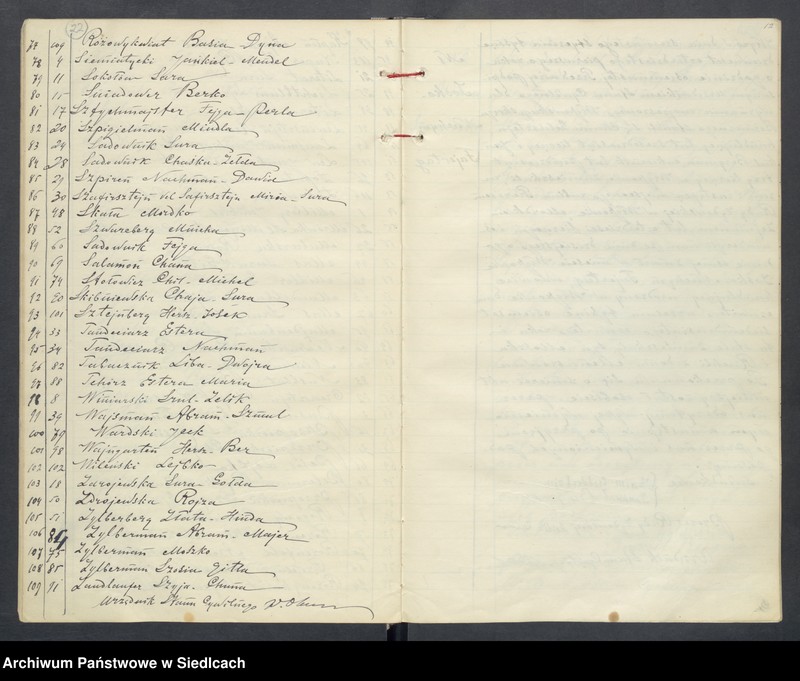 22
12
77 109 Różowykwiat Basia Dyna
78 4 Siemiatycki Jankiel-Mendel
79 11 Sokołów Sara
80 15 Świadower Berko
81 17 Sztychmajster Fejga-Perla
82 20 Szpigielman Mindla
83 24 Sadownik Sura
84 28 Sadownik Chaska-Zelda
85 29 Szpiren Nachman-Dawid
86 30 Szafirsztejn vel Safirsztejn Miria-Sura
87 48 Skała Mordko
88 52 Szwarzberg Mincha
89 60 Sadownik Fejga
90 69 Salamon Chana
91 74 Stołowicz Chil-Michel
92 80 Skibniewska Chaja-Sura
93 101 Sztejnberg Hersz-Josek
94 33 Tandeciarz Estera
95 34 Tandeciarz Nachman
96 82 Tabacznik Liba-Dwojra
97 88 Tchórz Estera Maria
98 8 Winiarski Srul-Zelik
99 39 Wajsman Abram-Szmul
100 79 Wardski Icek
101 98 Wajngarten Hersz-Ber
102 102 Wileński Lejbko
103 18 Zarojewska Sura-Gołda
104 50 Zdrojewska Rojza
105 51 Zylberberg Złata-Hinda
106 84 Zylberman Abram-Majer
107 75 Zylberman Moszko
108 85 Zylberman Szosia Gitla
109 91 Zundlaufer Szyja-Chuna
Urzędnik Stanu Cywilnego
Archiwum Państwowe w Siedlcach